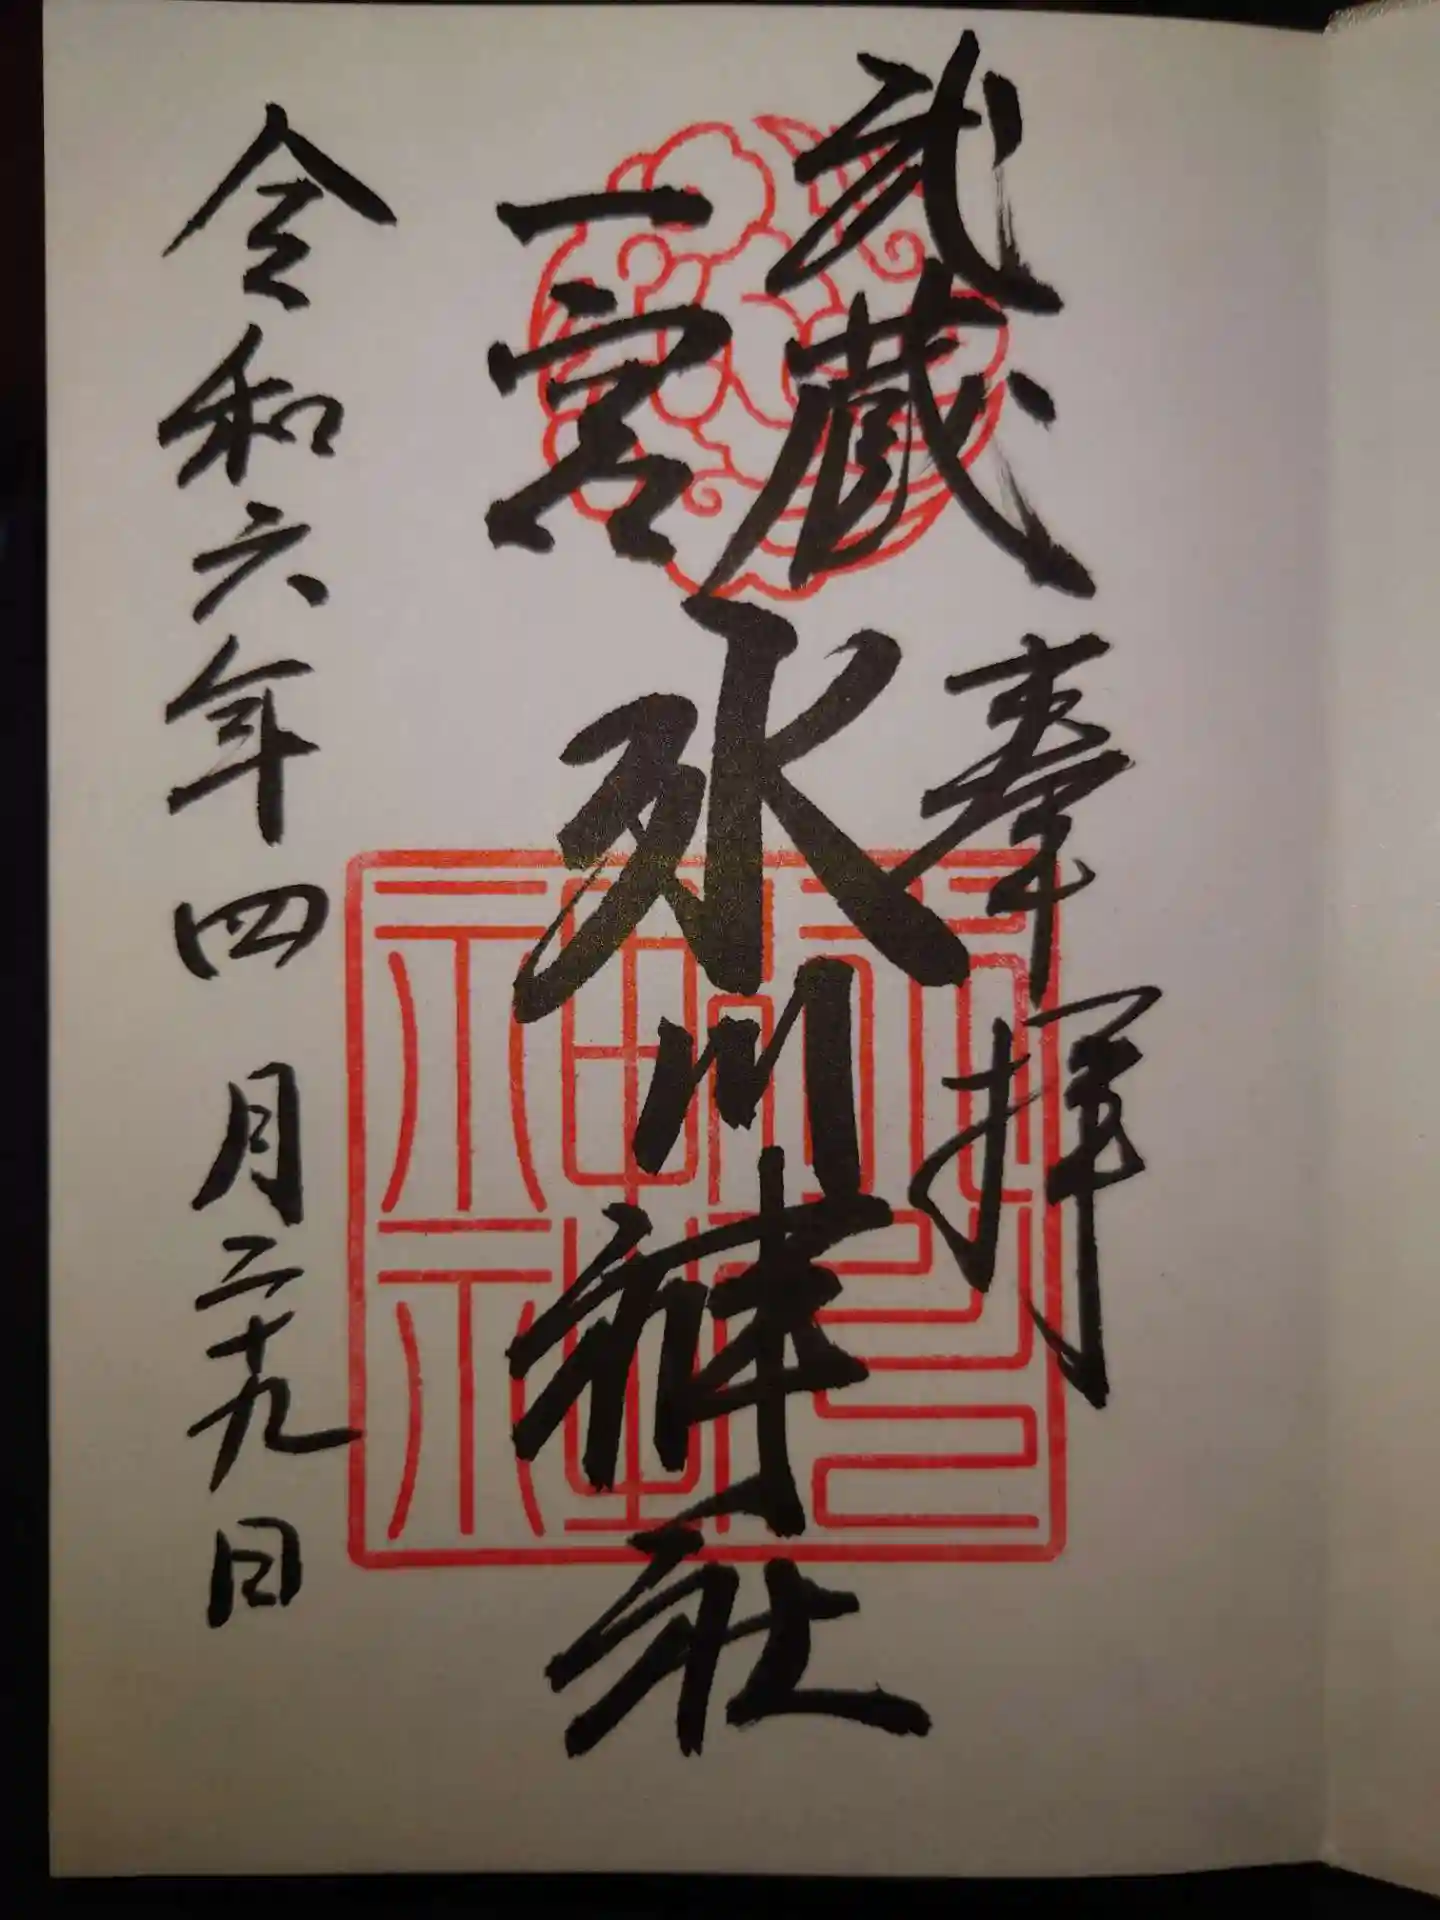 奉拝
武蔵
一宮
氷川神社
令和六年四月二十九日
氷川神社